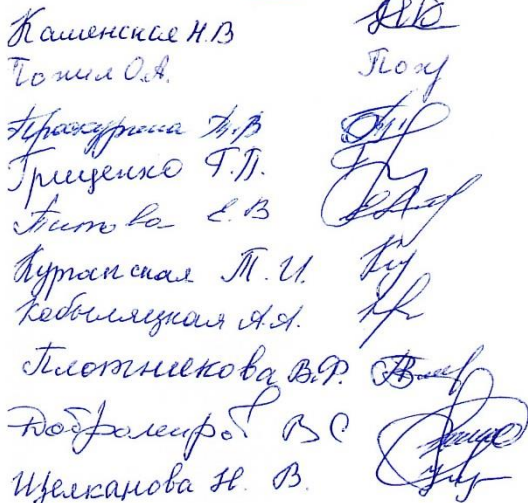 Каменская Н.В
Пожил О.А.
Прокурина Т.В
Грищенко Г.П.
Титова Е.В
Курганская Т.И.
Кобыляцкая А.А.
Плотникова В.Ф.
Добромиров ВС
Щелканова Н.В.